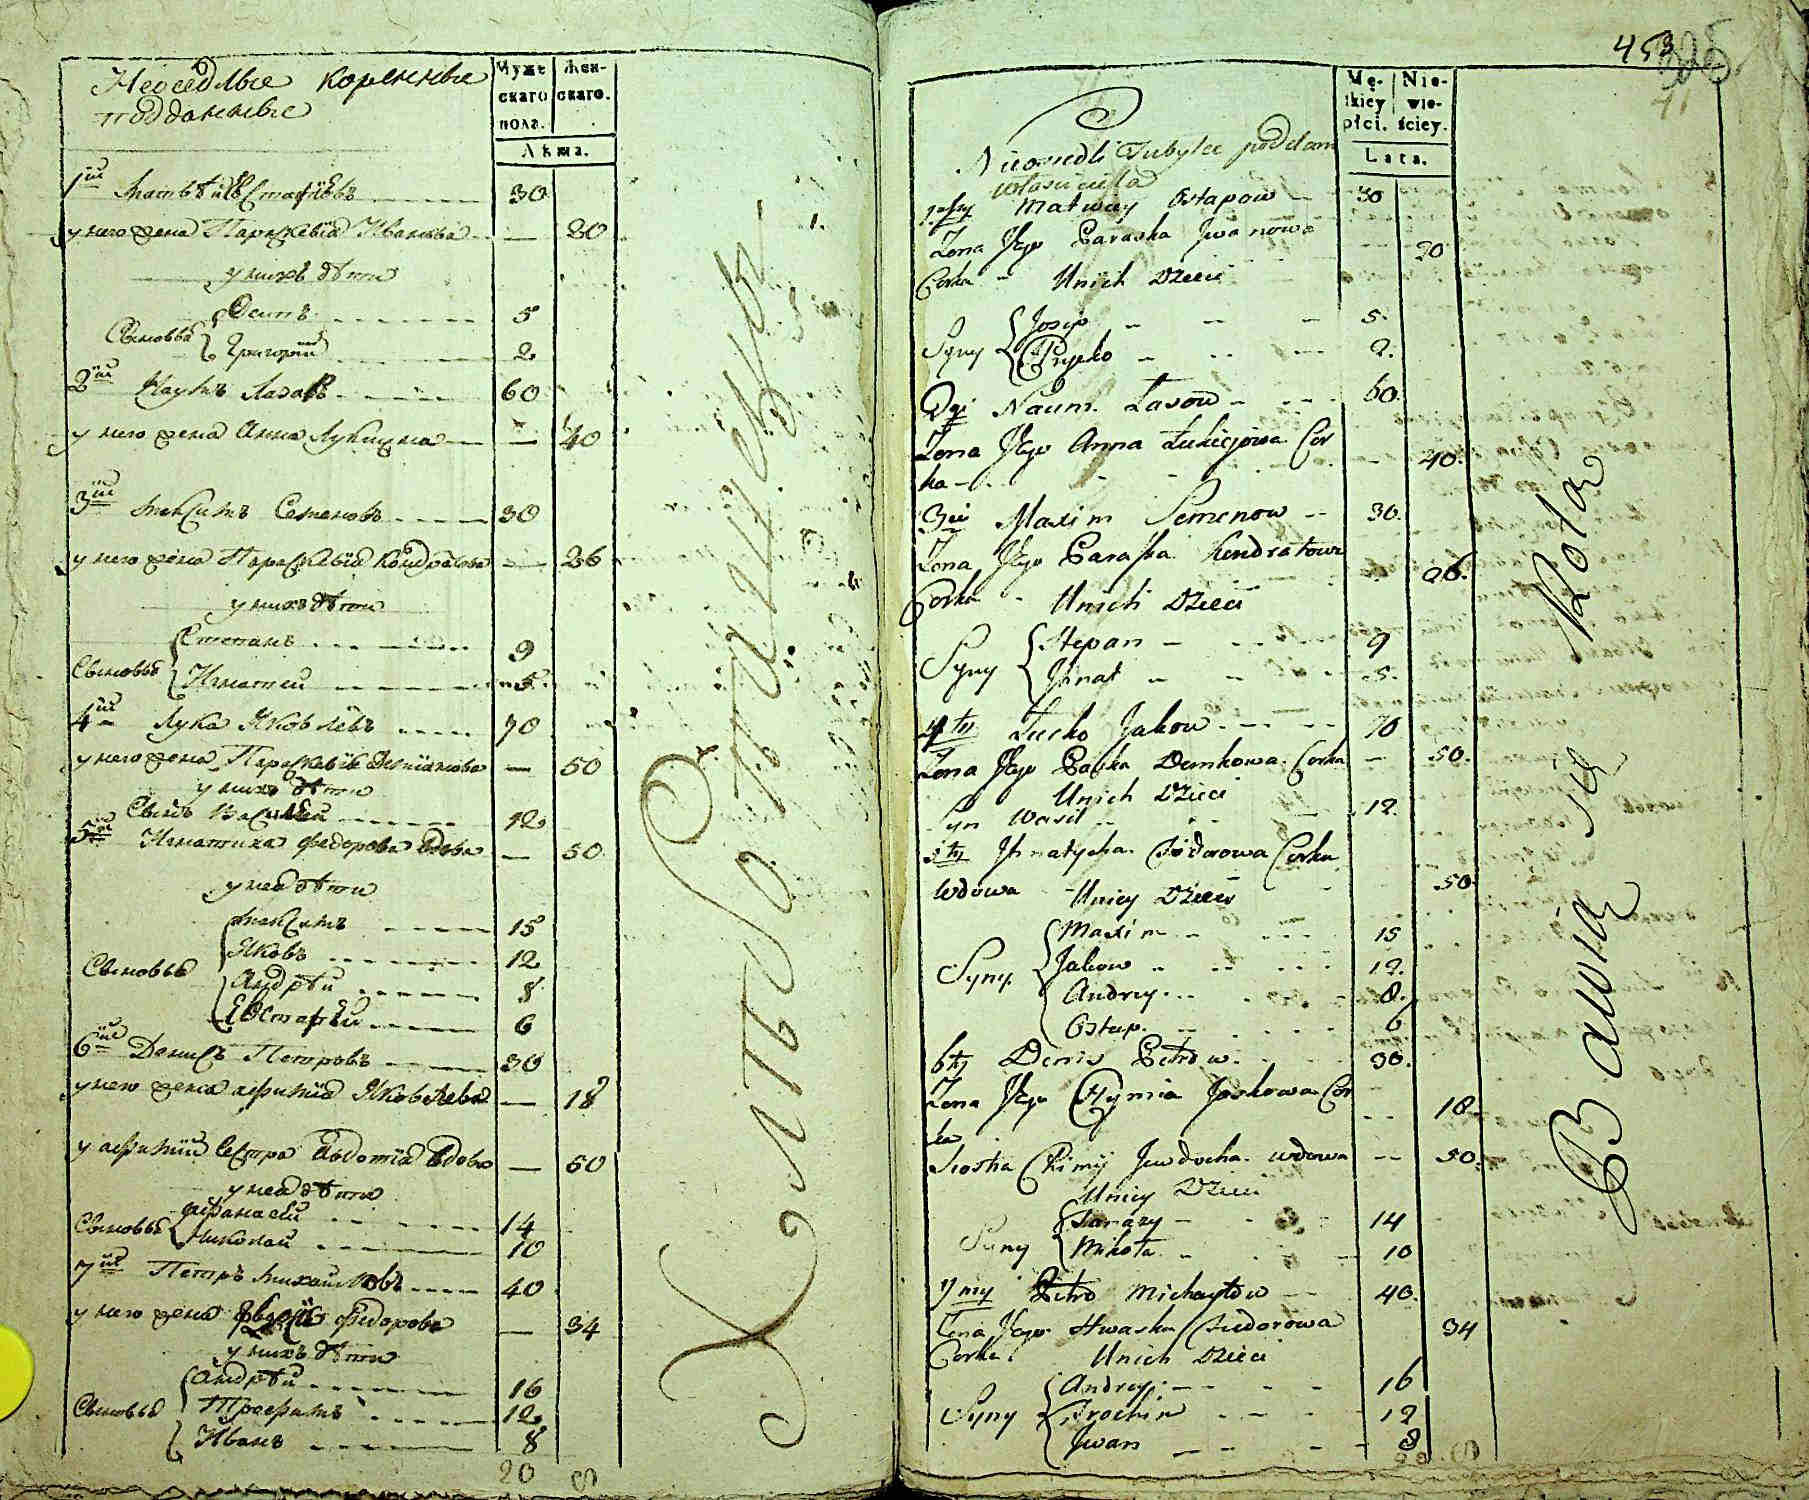 Неоседлые коренные
подданные
Мужескаго пола.
Женскаго.
Лѣта.
1й Матвѣй Естафіевъ 30
у него жена Параскевія Иванова — 20
у нихъ дѣти
Осипъ 5
Сыновья
Григорий 2
2й Наумъ Лазовъ 60
у него жена Анна Лукична — 40
3й Максимъ Семеновъ 30
у него жена Параскевія Кондратова — 26
у нихъ дѣти
Степанъ 9
Сыновья Игнатий 5
4й Лука Яковлевъ 70
у него жена Параскевія — 50
у нихъ дѣти
Сынъ Василий 12
5й Игнатиха Федорова вдова — 50
у нея дѣти
Максимъ 15
Яковъ 12
Сыновья
Андрѣй 8
Евстафѣй 6
6й Денисъ Петровъ 30
у него жена Афимія Яковлева — 18
у Афиміи сестра Авдотія вдова — 50
у нея дѣти
Афанасей 14
Сыновья Николай 10
7й Петръ Михайловъ 40
у него жена Федорова — 34
у нихъ дѣти
Андрѣй 16
Сыновья Трофимъ 12
Иванъ 8
20 8
453
Męskiey płci.
Niewieściey.
Lata.
Nieosiedli Tubylce poddani
własciciela
1szy Matwiey Ostapow 30
Zona Jego Paraska Jwanowa 20
Corka Unich Dzieci
Josyp 5.
Syny
Hryćko 2.
2gi Naum Łasow 60.
Zona Jego Anna Łukiejowa Cor
ka 40.
3ci Maxim Semenow 30.
Zona Jego Paraska Kondratowa 26.
Corka Unich Dzieci
Stepan 9
Syny Jhnat 5.
4ty Łucko Jakow 70
Zona Jego Paśka Demkowa Corka — 50.
Unich Dzieci
Syn Wasil 12.
5ty Jhnatycha Fiedorowa Corka
Wdowa Uniey Dzieci 50.
Maxim 15
Syny Jakow 12.
Andrey 8.
Ostap 6
6ty Denis Petrow 30.
Zona Jego Chymia Jaskowa Cor
ka 18.
Siostra Chimij Jewdocha wdowa 50.
Uniey Dzieci
Panazy 14
Syny Mikoła 10
7my Petro Michayłow 40.
Zona Jego Hwaska Fiedorowa 34
Corka. Unich Dzieci
Andrey 16
Syny Trochim 12
Jwan 8